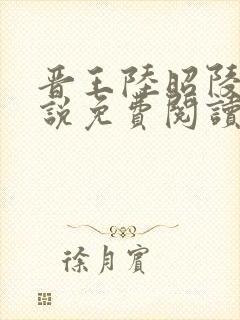 晋王陸昭陵
説免費閱讀
徐月賓